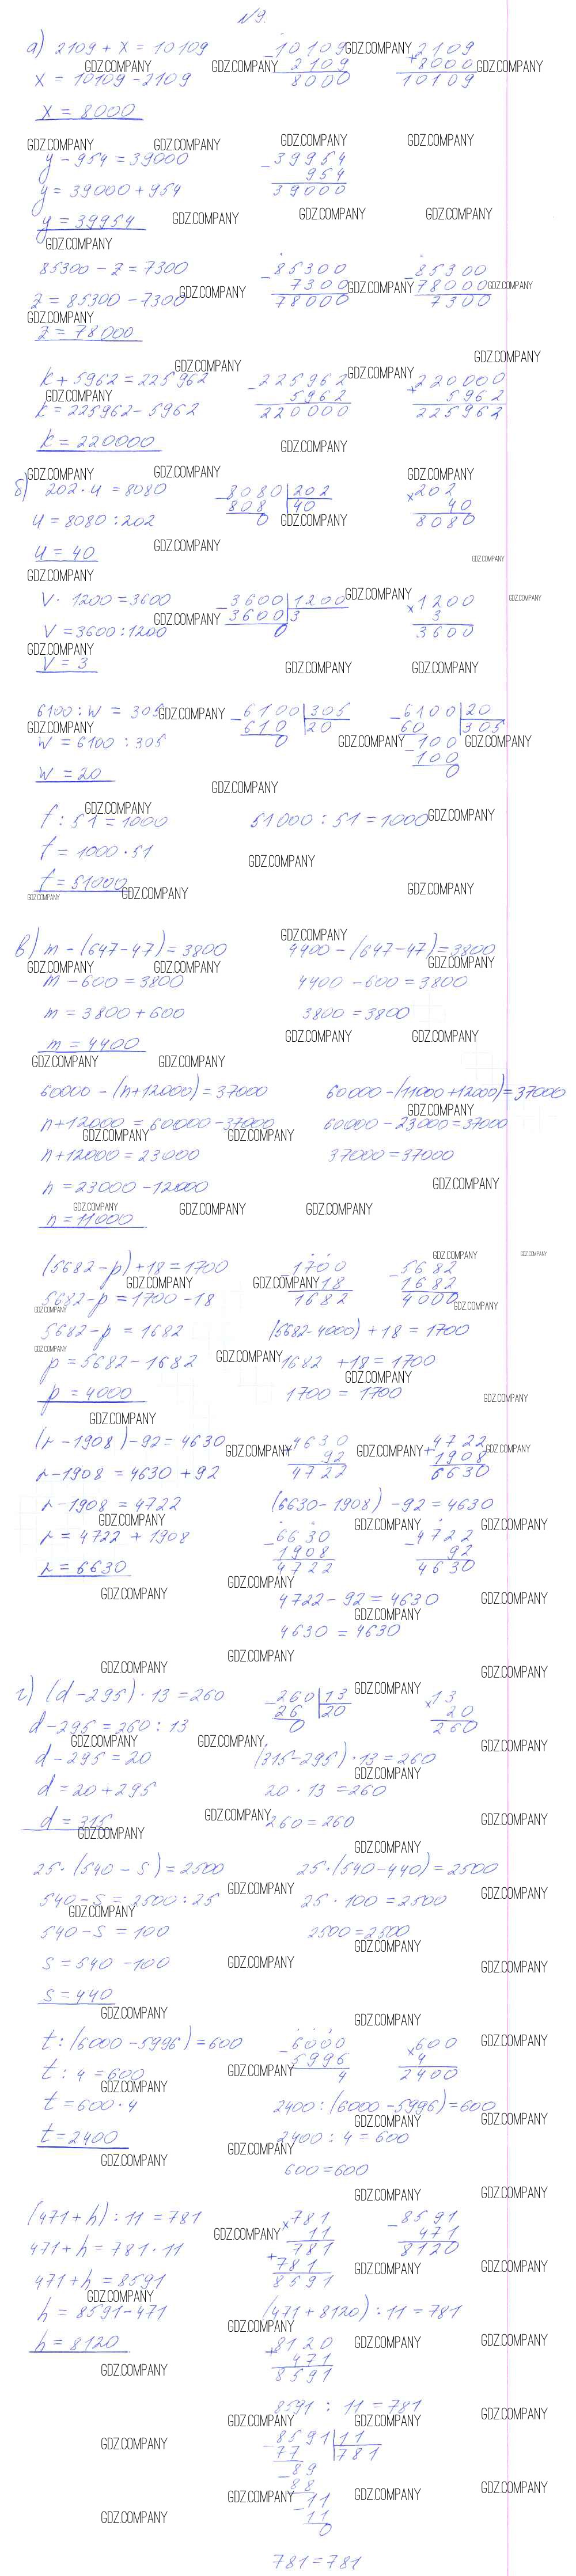 №9.
а) 2109 + x = 10109
x = 10109 - 2109
x = 8000
-10109
2109
8000
+2109
8000
10109
y - 954 = 39000
y = 39000 + 954
y = 39954
-39954
954
39000
85300 - z = 7300
z = 85300 - 7300
z = 78000
-85300
7300
78000
-85300
78000
7300
k + 5962 = 225962
k = 225962 - 5962
k = 220000
-225962
5962
220000
+220000
5962
225962
б) 202 · u = 8080
u = 8080 : 202
u = 40
-8080 | 202
808 | 40
0
×202
40
8080
V · 1200 = 3600
V = 3600 : 1200
V = 3
-3600 | 1200
3600 | 3
0
×1200
3
3600
6100 : w = 305
w = 6100 : 305
w = 20
-6100 | 305
610 | 20
0
-6100 | 20
60 | 305
-100
100
0
f : 51 = 1000
f = 1000 · 51
f = 51000
51000 : 51 = 1000
в) m - (647 - 47) = 3800
m - 600 = 3800
m = 3800 + 600
m = 4400
4400 - (647 - 47) = 3800
4400 - 600 = 3800
3800 = 3800
60000 - (n + 12000) = 37000
n + 12000 = 60000 - 37000
n + 12000 = 23000
n = 23000 - 12000
n = 11000
60000 - (11000 + 12000) = 37000
60000 - 23000 = 37000
37000 = 37000
(5682 - p) + 18 = 1700
5682 - p = 1700 - 18
5682 - p = 1682
p = 5682 - 1682
p = 4000
1700
18
1682
-5682
1682
4000
(5682 - 4000) + 18 = 1700
1682 + 18 = 1700
1700 = 1700
(r - 1908) - 92 = 4630
r - 1908 = 4630 + 92
r - 1908 = 4722
r = 4722 + 1908
r = 6630
+4630
92
4722
+4722
1908
6630
(6630 - 1908) - 92 = 4630
-6630
1908
4722
-4722
92
4630
4722 - 92 = 4630
4630 = 4630
г) (d - 295) · 13 = 260
d - 295 = 260 : 13
d - 295 = 20
d = 20 + 295
d = 315
-260 | 13
26 | 20
0
×13
20
260
(315 - 295) · 13 = 260
20 · 13 = 260
260 = 260
25 · (540 - s) = 2500
540 - s = 2500 : 25
540 - s = 100
s = 540 - 100
s = 440
25 · (540 - 440) = 2500
25 · 100 = 2500
2500 = 2500
t : (6000 - 5996) = 600
t : 4 = 600
t = 600 · 4
t = 2400
-6000
5996
4
×600
4
2400
2400 : (6000 - 5996) = 600
2400 : 4 = 600
600 = 600
(471 + h) : 11 = 781
471 + h = 781 · 11
471 + h = 8591
h = 8591 - 471
h = 8120
×781
11
781
+781
8591
-8591
471
8120
(471 + 8120) : 11 = 781
+8120
471
8591
8591 : 11 = 781
-8591 | 11
77 | 781
-89
88
-11
11
0
781 = 781
GDZ.COMPANY